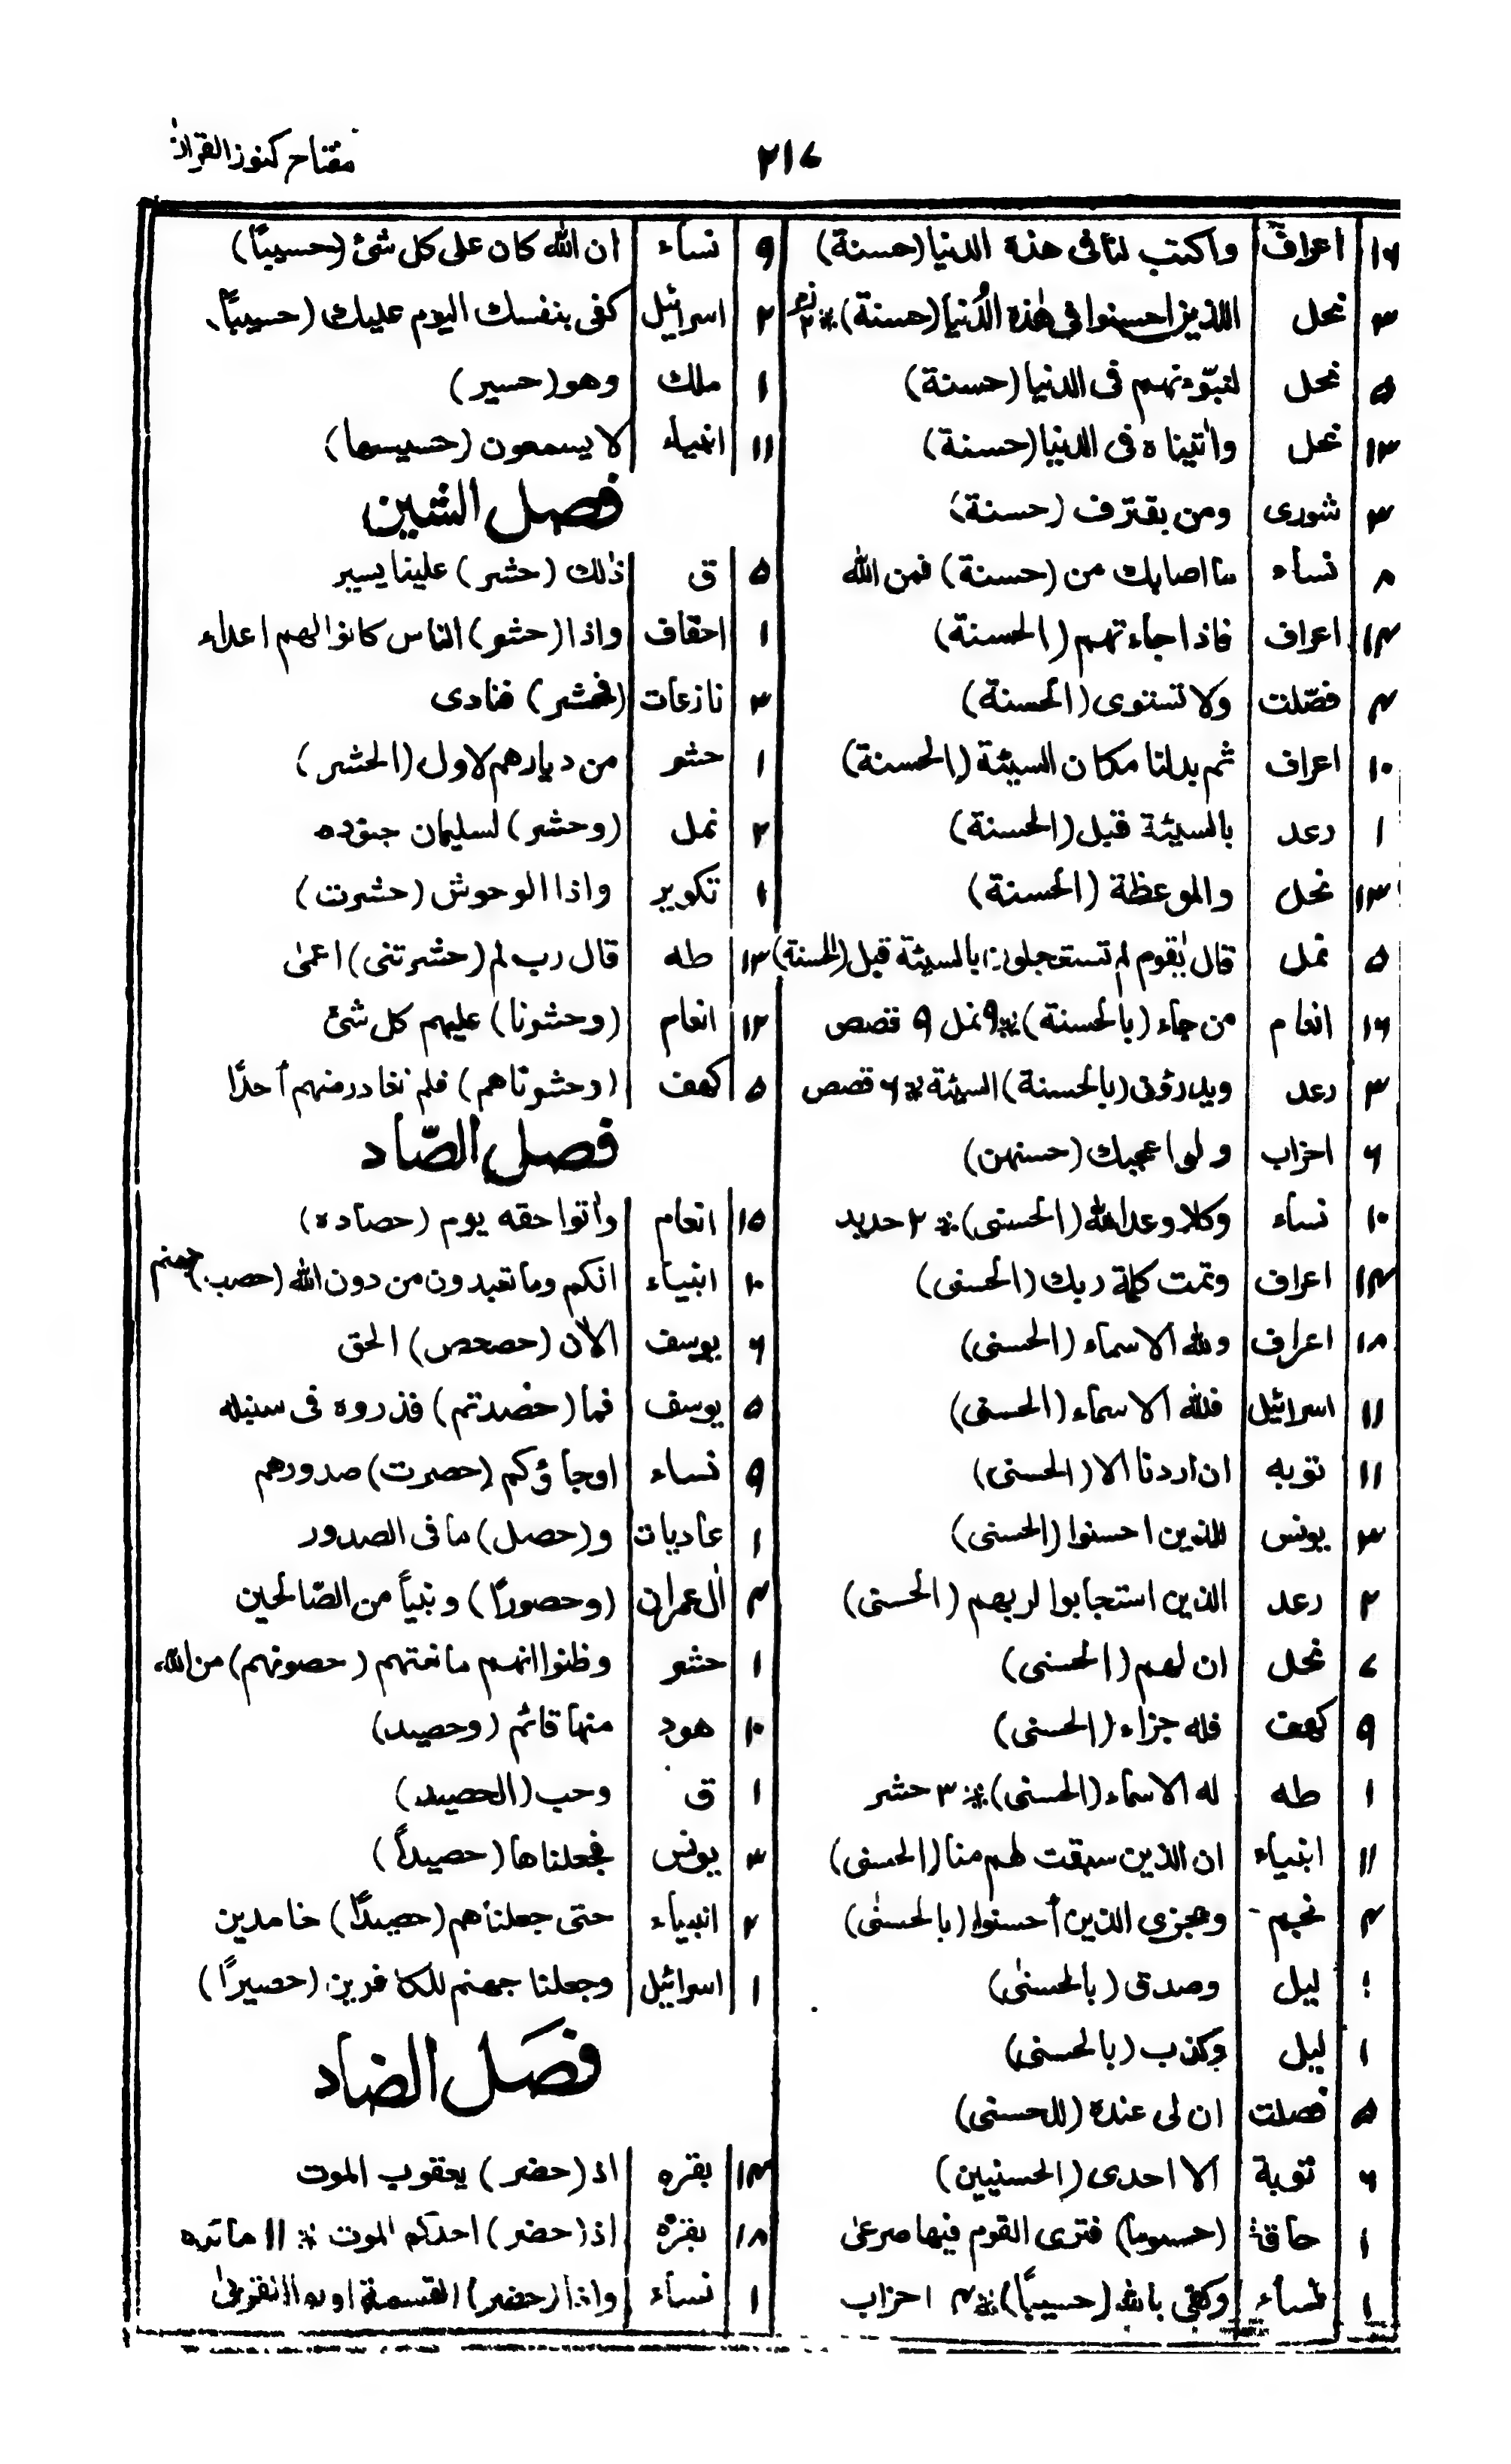 ۲۱۷
مفتاح کنوز القران
۱۶ اعراف واکتب لنا فی هذه الدنیا (حسنة)
۳ نحل للذین احسنوا فی هٰذه الدُنیا (حسنة) ※ ۲ زمر
۵ نحل لنبوّءنهم فی الدنیا (حسنة)
۱۳ نحل واٰتیناه فی الدنیا (حسنة)
۳ شوری ومن یقترف (حسنة)
۸ نساء ما اصابك من (حسنة) فمن الله
۱۴ اعراف فاذا جاءتهم (الحسنة)
۴ فصّلت ولا تستوی (الحسنة)
۱۰ اعراف ثم بدلنا مکان السیئة (الحسنة)
۱ رعد بالسیئة قبل (الحسنة)
۱۳ نحل والموعظة (الحسنة)
۵ نمل قال یٰقوم لم تستعجلون بالسیئة قبل (الحسنة)
۱۶ انعام من جاء (بالحسنة) ※ ۹ نمل ۹ قصص
۳ رعد ویدرؤن (بالحسنة) السیئة ※ ۶ قصص
۶ احزاب ولو اعجبك (حسنهن)
۱۰ نساء وکلا وعد الله (الحسنی) ※ ۲ حدید
۱۴ اعراف وتمت کلمة ربك (الحسنی)
۱۸ اعراف ولله الاسماء (الحسنی)
۱۱ اسرائیل فلله الاسماء (الحسنی)
۱۱ توبه ان اردنا الا (الحسنی)
۳ یونس للذین احسنوا (الحسنی)
۲ رعد الذین استجابوا لربهم (الحسنی)
۷ نحل ان لهم (الحسنی)
۹ کهف فله جزاء (الحسنی)
۱ طه له الاسماء (الحسنی) ※ ۳ حشر
۱۱ انبیاء ان الذین سبقت لهم منا (الحسنی)
۴ نجم ویجزی الذین أحسنوا (بالحسنٰی)
۱ لیل وصدق (بالحسنٰی)
۱ لیل وکذب (بالحسنی)
۵ فصلت ان لی عنده (للحسنی)
۶ توبة الا احدی (الحسنیین)
۱ حاقة (حسوما) فتری القوم فیها صرعیٰ
۱ نساء وکفی بالله (حسیبًا) ※ ۴ احزاب
۹ نساء ان الله کان علی کل شئ (حسیبًا)
۲ اسرائیل کفی بنفسك الیوم علیك (حسیبًا)
۱ ملك وهو (حسیر)
۱۱ انبیاء لا یسمعون (حسیسها)
فصل الشین
۵ ق ذٰلك (حشر) علینا یسیر
۱ احقاف واذا (حشر) الناس کانوا لهم اعداء
۳ نازعات (فحشر) فنادی
۱ حشر من دیارهم لاول (الحشر)
۲ نمل (وحشر) لسلیمان جنوده
۱ تکویر واذا الوحوش (حشرت)
۱۳ طه قال رب لم (حشرتنی) اعمیٰ
۱۲ انعام (وحشرنا) علیهم کل شئ
۵ کهف (وحشرناهم) فلم نغادر منهم أحدًا
فصل الصّاد
۱۵ انعام واٰتوا حقه یوم (حصاده)
۱۰ انبیاء انکم وما تعبدون من دون الله (حصب) جهنم
۶ یوسف الاٰن (حصحص) الحق
۵ یوسف فما (حصدتم) فذروه فی سنبله
۹ نساء اوجاؤکم (حصرت) صدورهم
۱ عادیات و (حصل) ما فی الصدور
۴ اٰل عمران (وحصورًا) ونبیاً من الصّالحین
۱ حشر وظنوا انهم مانعتهم (حصونهم) من الله
۱۰ هود منها قائم (وحصید)
۱ ق وحب (الحصید)
۳ یونس فجعلناها (حصیداً)
۲ انبیاء حتی جعلناهم (حصیدًا) خامدین
۱ اسرائیل وجعلنا جهنم للکافرین (حصیرًا)
فصَل الضاد
۱۴ بقره اذ (حضر) یعقوب الموت
۱۸ بقره اذا (حضر) احدکم الموت ※ ۱۱ مائده
۱ نساء واذا (حضر) القسمة اولوا القربیٰ